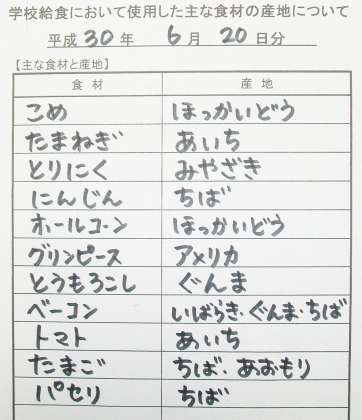 学校給食において使用した主な食材の産地について
平成 30 年 6 月 20 日分
【主な食材と産地】
食材 産地
こめ ほっかいどう
たまねぎ あいち
とりにく みやざき
にんじん ちば
ホールコーン ほっかいどう
グリンピース アメリカ
とうもろこし ぐんま
ベーコン いばらき・ぐんま・ちば
トマト あいち
たまご ちば・あおもり
パセリ ちば